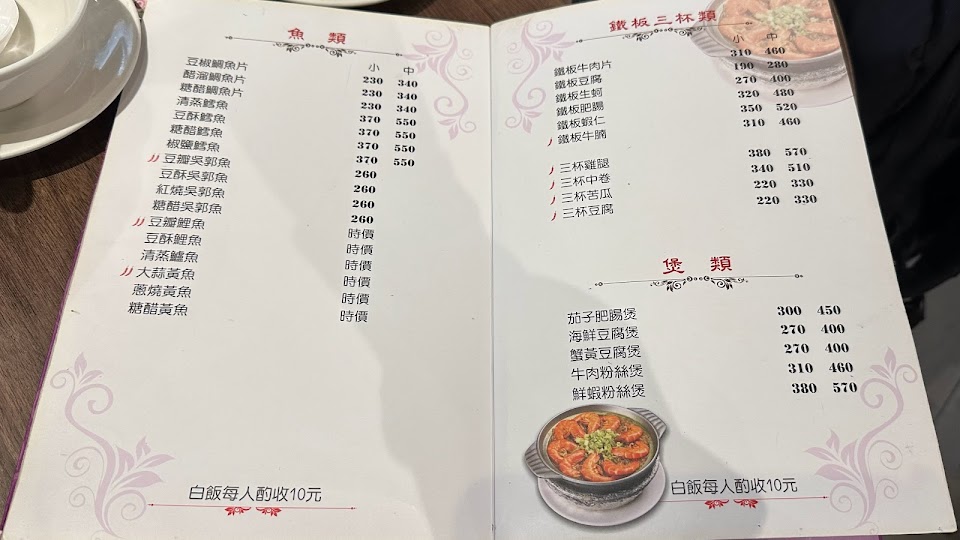 魚 類
小 中
豆椒鯛魚片 230 340
醋溜鯛魚片 230 340
糖醋鯛魚片 230 340
清蒸鱈魚 370 550
豆酥鱈魚 370 550
糖醋鱈魚 370 550
椒鹽鱈魚 370 550
豆瓣吳郭魚 260
豆酥吳郭魚 260
紅燒吳郭魚 260
糖醋吳郭魚 260
豆瓣鯉魚 時價
豆酥鯉魚 時價
清蒸鱸魚 時價
大蒜黃魚 時價
蔥燒黃魚 時價
糖醋黃魚 時價
白飯每人酌收10元
鐵板三杯類
小 中
鐵板牛肉片 310 460
鐵板豆腐 190 280
鐵板生蚵 270 400
鐵板肥腸 320 480
鐵板蝦仁 350 520
鐵板牛腩 310 460
三杯雞腿 380 570
三杯中卷 340 510
三杯苦瓜 220 330
三杯豆腐 220 330
煲 類
茄子肥腸煲 300 450
海鮮豆腐煲 270 400
蟹黃豆腐煲 270 400
牛肉粉絲煲 310 460
鮮蝦粉絲煲 380 570
白飯每人酌收10元